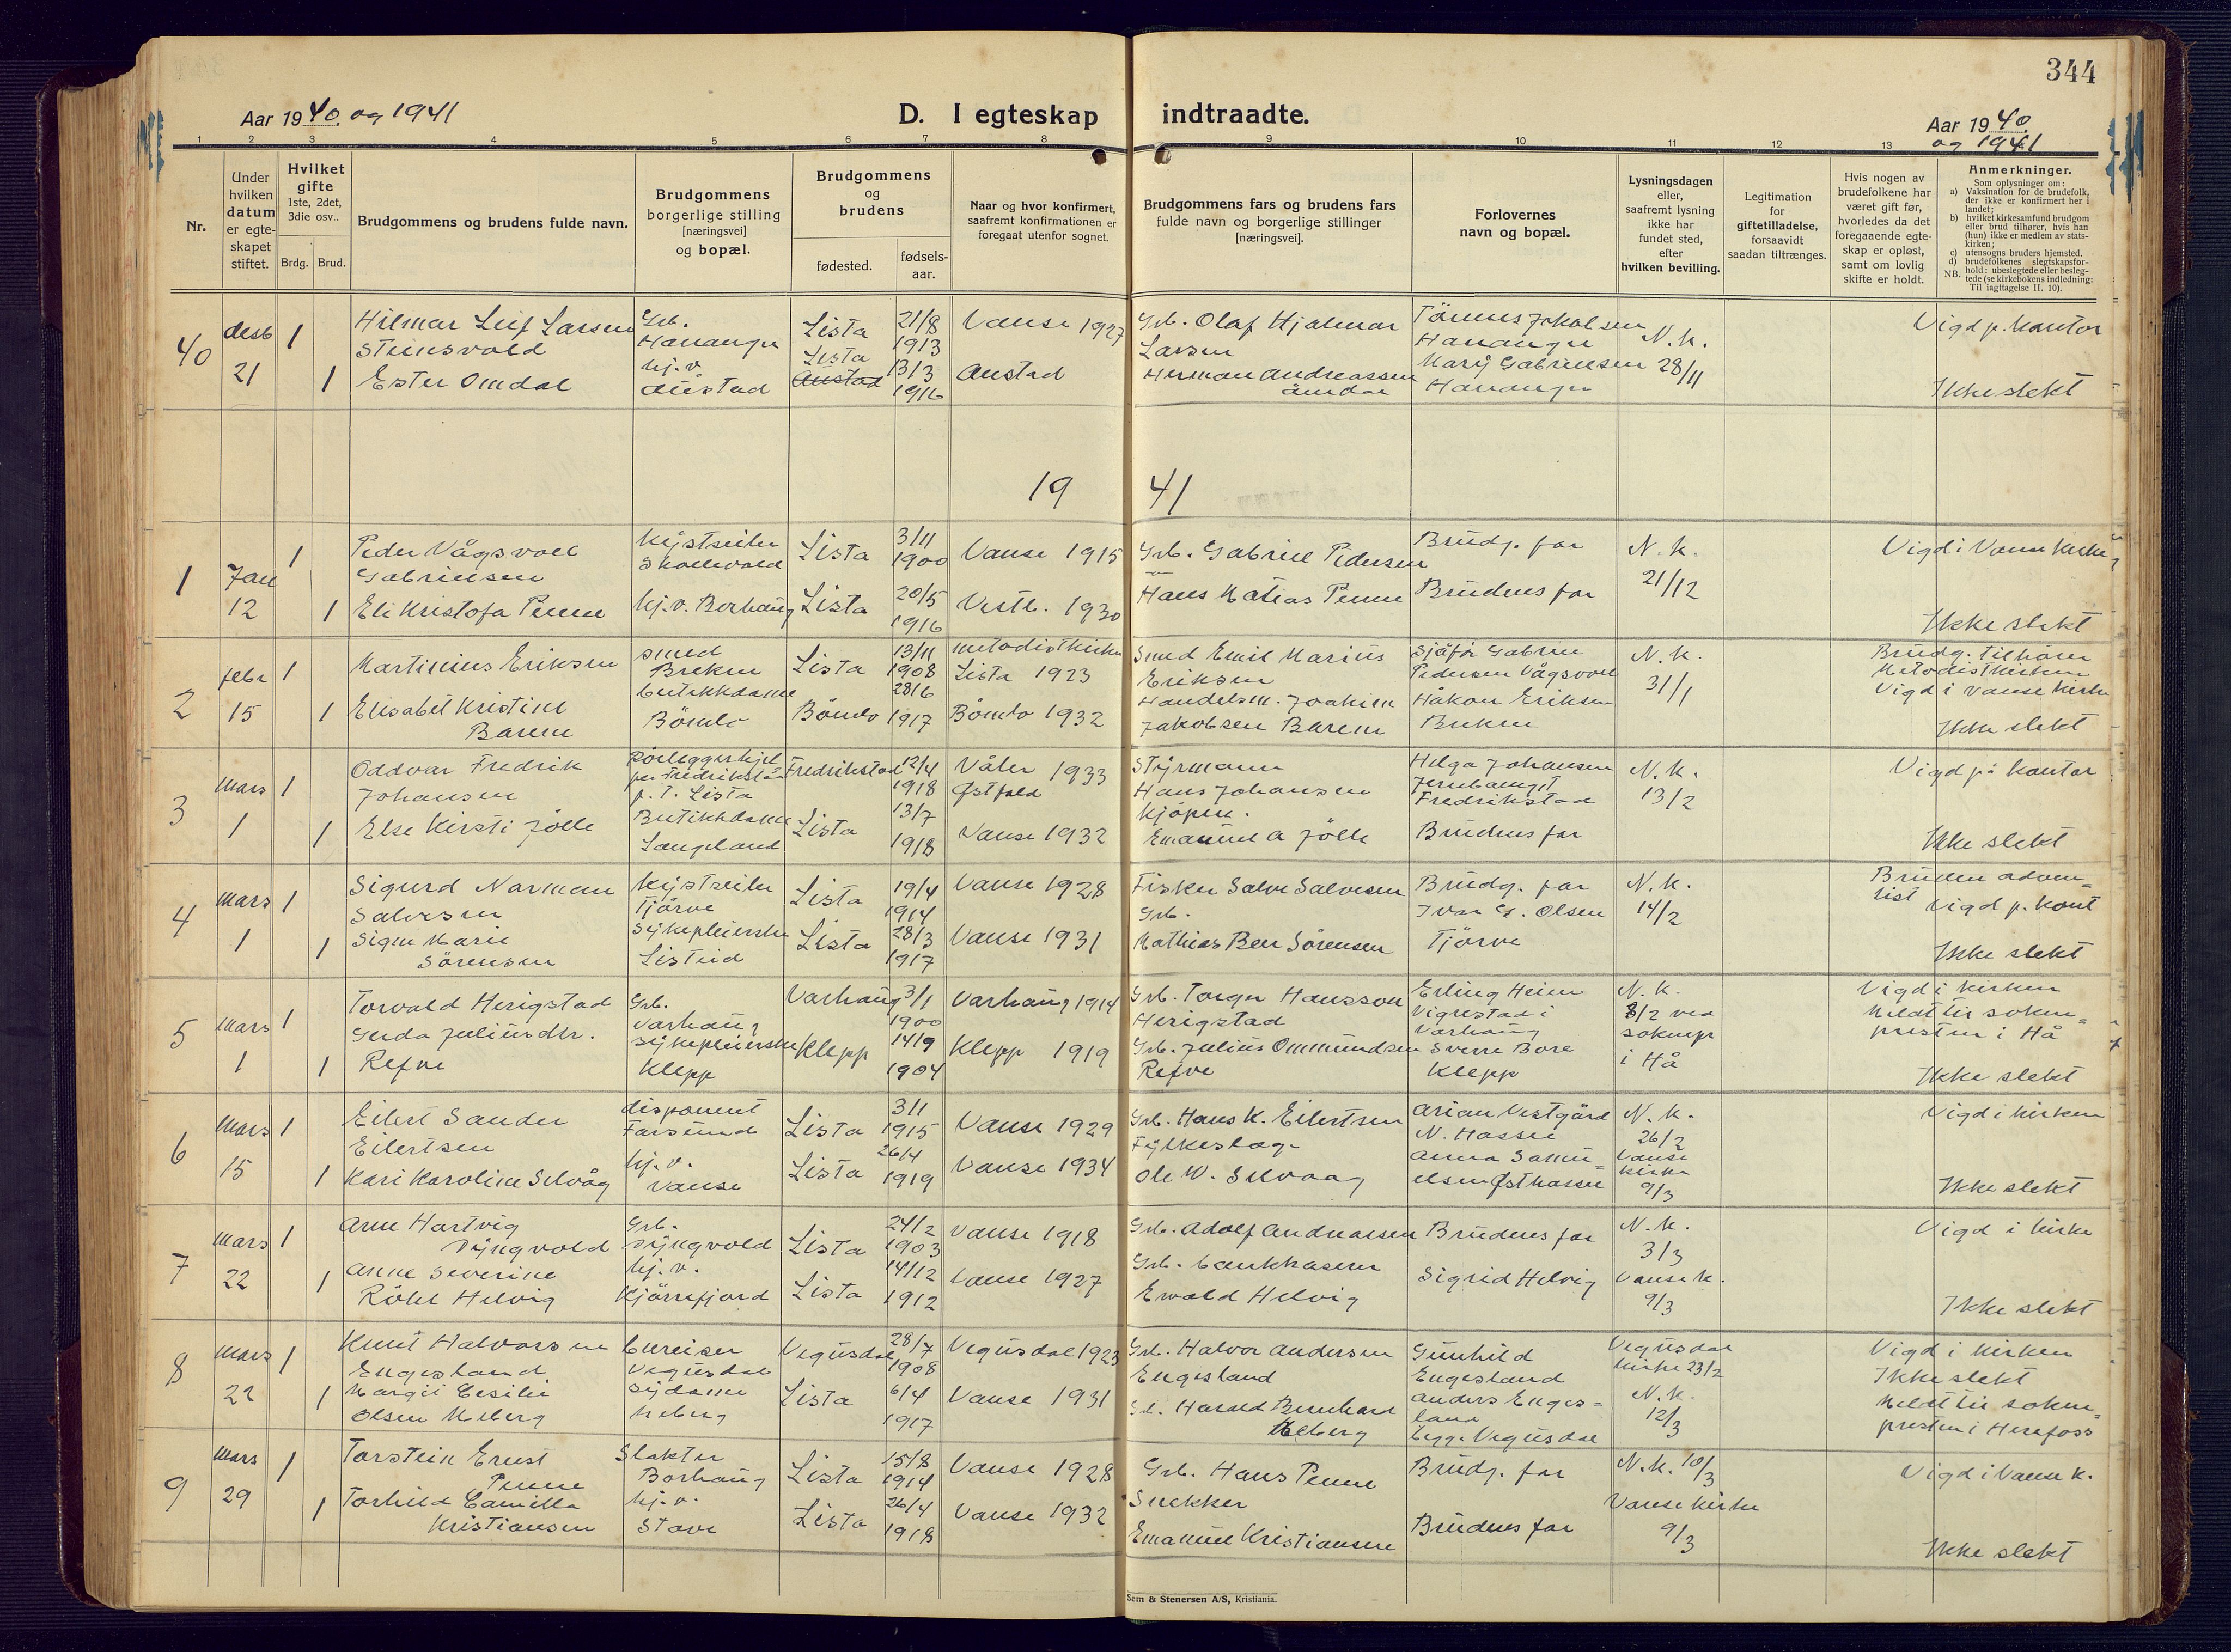 344
Aar 1940. og 1941
D. I egteskap indtraadte.
Aar 1940.
og 1941
1 2 3 4 5 6 7 8 9 10 11 12 13
Nr.
Under hvilken datum er egteskapet stiftet.
Hvilket gifte 1ste, 2det, 3die osv..
Brdg. Brud.
Brudgommens og brudens fulde navn.
Brudgommens borgerlige stilling [næringsvei] og bopæl.
Brudgommens og brudens
fødested.
fødselsaar.
Naar og hvor konfirmert, saafremt konfirmationen er foregaat utenfor sognet.
Brudgommens fars og brudens fars fulde navn og borgerlige stillinger [næringsvei].
Forlovernes navn og bopæl.
Lysningsdagen eller, saafremt lysning ikke har fundet sted, efter hvilken bevilling.
Legitimation for giftetilladelse, forsaavidt saadan tiltrænges.
Hvis nogen av brudefolkene har været gift før, hvorledes da det foregaaende egteskap er opløst, samt om lovlig skifte er holdt.
Anmerkninger.
Som oplysninger om:
a) Vaksination for de brudefolk, der ikke er konfirmert her i landet;
b) hvilket kirkesamfund brudgom eller brud tilhører, hvis han (hun) ikke er medlem av statskirken;
c) utensogns bruders hjemsted.
d) brudefolkenes slegtskapsforhold: ubeslegtede eller beslegtede (se kirkebokens indledning: Til iagttagelse II. 10).
NB.
40 desb 21 1 Hilmar Leif Larsen Steinsvold
Grb. Hananger Lista 21/8 1913 Vanse 1927
Grb. Olaf Hjalmar Larsen
Tönnes Jakobsen Hananger
N.K. 28/11
Vigd p. Kontor
1 Ester Omdal
hj.v. Austad Lista Austad 13/3 1916 Austad
Herman Andreassen Åmdal
Mary Gabrielsen Hananger
Ikke slekt
1941
1 Jan 12 1 Peder Vågsvoll Gabrielsen
Kystseiler Skollevold Lista 3/11 1900 Vanse 1915
Grb. Gabriel Pedersen
Brudg. far
N.K. 21/12
Vigd i Vanse Kirke
1 Eli Kristofa Penne
hj.v. Borhaug Lista 20/5 1916 Vestb. 1930
Hans Matias Penne
Brudens far
Ikke slekt
2 febr 15 1 Martinius Eriksen
smed Brekne Lista 13/11 1908 metodistkirken Lista 1923
Smed Emil Marius Eriksen
Sjåfør Gabriel Pedersen Vågsvoll
N.K. 31/1
Brudg. tilhörer Metodistkirken
Vigd i Vanse kirke
1 Elisabet Kristine Barem
butikkdame Bömlo Bömlo 28/6 1917 Bömlo 1932
Handelsm. Joakim Jakobsen Barem
Håkon Eriksen Brekne
Ikke slekt
3 mars 1 1 Oddvar Fredrik Johansen
Rörleggerhjelper Fredrikstad p.t. Lista Fredrikstad 12/4 1918 Våler Østfold 1933
Styrmann Hans Johansen
Helga Johansen Fredrikstad
N.K. 13/2
Vigd på kontor
1 Else Kirsti Jölle
Butikkdame Langeland Lista 13/7 1918 Vanse 1932
Kjöpm. Emanuel A Jölle
Brudens far
Ikke slekt
4 mars 1 1 Sigurd Norman Salvesen
Kystseiler Tjörve Lista 19/4 1914 Vanse 1928
Fisker Salve Salvesen
Brudg. far
N.K. 14/2
Bruden adventist Vigd p. Kont
1 Signe Marie Sörensen
Sykepleierske Listeid Lista 28/3 1917 Vanse 1931
Grb. Mathias Ber Sörensen
Ivar G. Olsen Tjörve
Ikke slekt
5 mars 1 1 Torvald Herigstad
Grb. Varhaug Varhaug 3/1 1900 Varhaug 1914
Grb. Torger Hansson Herigstad
Erling Heien Vigrestad i Varhaug
N.K. 8/2 ved soknepr i Hå
Vigd i kirken
Meldt til soknepresten i Hå
1 Gerda Juliusdtr. Refve
sykepleierske Klepp Klepp 14/9 1904 Klepp 1919
Grb. Julius Ommundsen Refve
Sverre Bore Klepp
Ikke slekt
6 mars 15 1 Eilert Sander Eilertsen
disponent Farsund Lista 3/1 1915 Vanse 1929
Grb. Hans K. Eilertsen
Arian Vestgård N. Hassel
N.K. 26/2 Vanse kirke 9/3
Vigd i kirken
1 Kari Karoline Selvåg
hj.v. Vanse Lista 26/4 1919 Vanse 1934
Fylkeslege Ole W. Selvaag
Anna Samuelsen Østhassel
Ikke slekt
7 mars 22 1 Arne Hartvig Dyngvold
Grb. Dyngvold Lista 24/2 1903 Vanse 1918
Grb. Adolf Andreassen
Brudens far
N.K. 3/3 Vanse K. 9/3
Vigd i kirke
1 Anne Severine Rökel Helvig
hj.v. Kjörrefjord Lista 14/12 1912 Vanse 1927
Grb. bankkaserer Ewald Helvig
Sigrid Helvig
Ikke slekt
8 mars 22 1 Knut Halvorsen Engesland
bureiser Vegusdal Vegusdal 28/7 1908 Vegusdal 1923
Grb. Halvor Andersen Engesland
Gunhild Engesland
Vegusdal kirke 23/2 N.K. 12/3
Vigd i kirken
Ikke slekt
Meldt til soknepresten i Herefoss
1 Margit Cesilie Olsen Meberg
sydame Meberg Lista 6/4 1917 Vanse 1931
Harald Bernhard Meberg
Anders Engesland Vegusdal
9 mars 29 1 Torstein Ernst Penne
Slakter Borhaug Lista 15/8 1914 Vanse 1928
Grb. Hans Penne
Brudg. far
N.K. 10/3 Vanse Kirke 9/3
Vigd i Vanse k.
1 Torhild Camilla Kristiansen
hj.v. Stave Lista 26/4 1918 Vanse 1932
Snekker Emanuel Kristiansen
Brudens far
Ikke slekt
Sem & Stenersen A/S, Kristiania.